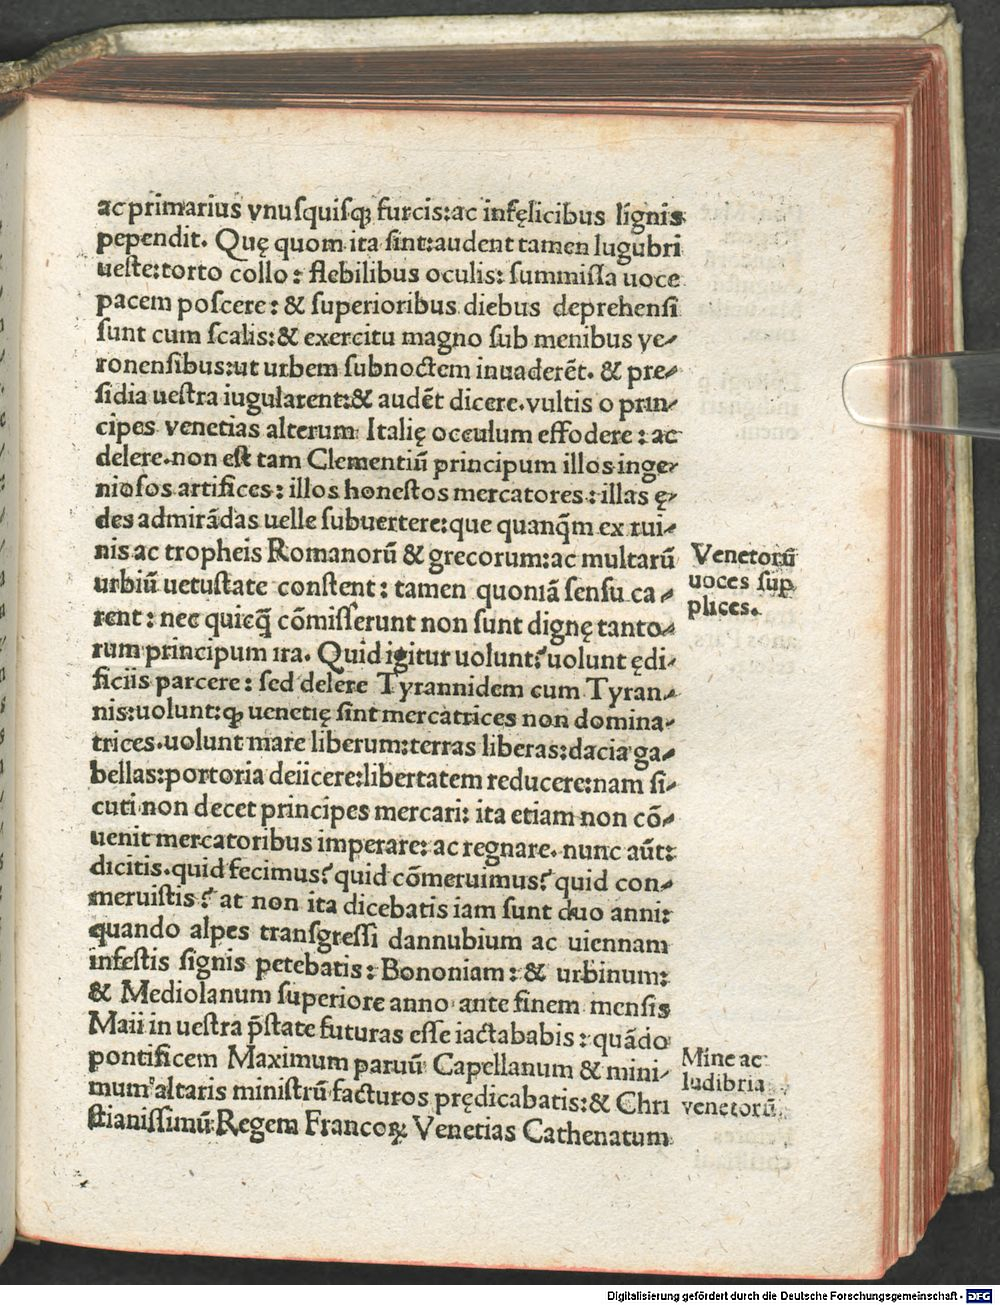 ac primarius vnusquisqꝫ furcis: ac infęlicibus lignis
pependit. Quę quom ita sint: audent tamen lugubri
ueste: torto collo: flebilibus oculis: summissa uoce
pacem poscere: & superioribus diebus deprehensi
sunt cum scalis: & exercitu magno sub menibus ve⸗
ronensibus: ut urbem subnoctem inuaderēt. & pre⸗
sidia uestra iugularent: & audēt dicere. vultis o prin⸗
cipes venetias alterum Italię occulum effodere: ac
delere. non est tam Clementiū principum illos inge⸗
niosos artifices: illos honestos mercatores: illas ę⸗
des admirādas uelle subuertere: que quanq̄m ex rui⸗
nis ac tropheis Romanorū & grecorum: ac multarū
urbiū uetustate constent: tamen quoniā sensu ca⸗
rent: nec quicq̄ cōmisserunt non sunt dignę tanto⸗
rum principum ira. Quid igitur uolunt? uolunt ędi⸗
ficiis parcere: sed delere Tyrannidem cum Tyran⸗
nis: uolunt: qꝫ uenetię sint mercatrices non domina⸗
trices. uolunt mare liberum: terras liberas: dacia ga⸗
bellas: portoria deiicere: libertatem reducere: nam si⸗
cuti non decet principes mercari: ita etiam non cō⸗
uenit mercatoribus imperare: ac regnare. nunc aūt:
dicitis. quid fecimus? quid cōmeruimus? quid con⸗
meruistis? at non ita dicebatis iam sunt duo anni:
quando alpes transgressi dannubium ac uiennam
infestis signis petebatis: Bononiam: & urbinum:
& Mediolanum superiore anno ante finem mensis
Maii in uestra p̄state futuras esse iactababis: quādo
pontificem Maximum paruū Capellanum & mini⸗
mum altaris ministrū facturos prędicabatis: & Chri
stianissimū Regem Francoꝝ Venetias Cathenatum
Venetorū
uoces sup
plices.
Mine ac
ludibria
venetorū.
Digitalisierung gefördert durch die Deutsche Forschungsgemeinschaft - DFG